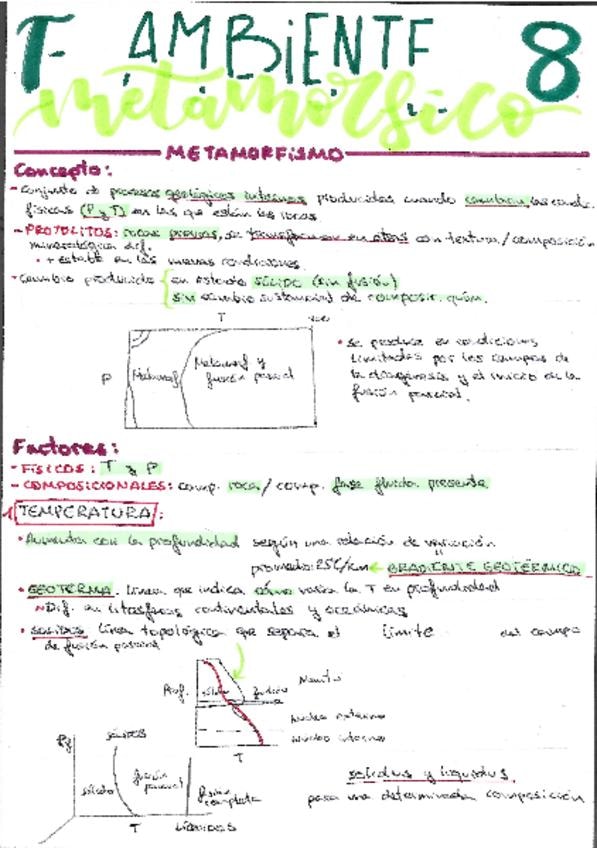 T- AMBIENTE 8
metamórfico
METAMORFISMO
Concepto:
- conjunto de procesos geológicos internos producidos cuando cambian las condic.
físicas (P y T) en las que están las rocas
- PROTOLITOS: rocas previas, se transforman en otras con textura/composición
mineralógica dif.
• + estable en las nuevas condiciones
• cambio producido en estado sólido (sin fusión)
sin cambio sustancial de composic. quím.
T
P
Metamorf
Metamorf y
fusión parcial
• se produce en condiciones
limitadas por los campos de
la diagénesis y el inicio de la
fusión parcial.
Factores:
- FÍSICOS: T y P
- COMPOSICIONALES: comp. roca / comp. fase fluida presente
1 TEMPERATURA:
• Aumenta con la profundidad según una relación de variación
promedio: 25°C/km ← GRADIENTE GEOTÉRMICO
• GEOTERMA. Línea que indica cómo varía la T en profundidad
Dif. en litosferas continentales y oceánicas
• SOLIDUS línea topológica que separa el límite del campo
de fusión parcial
Prof.
sólido
fusión
Manto
núcleo externo
núcleo interno
T
SÓLIDUS
sólido
fusión
parcial
fusión
completa
T
LÍQUIDUS
solidus y liquidus.
para una determinada composición